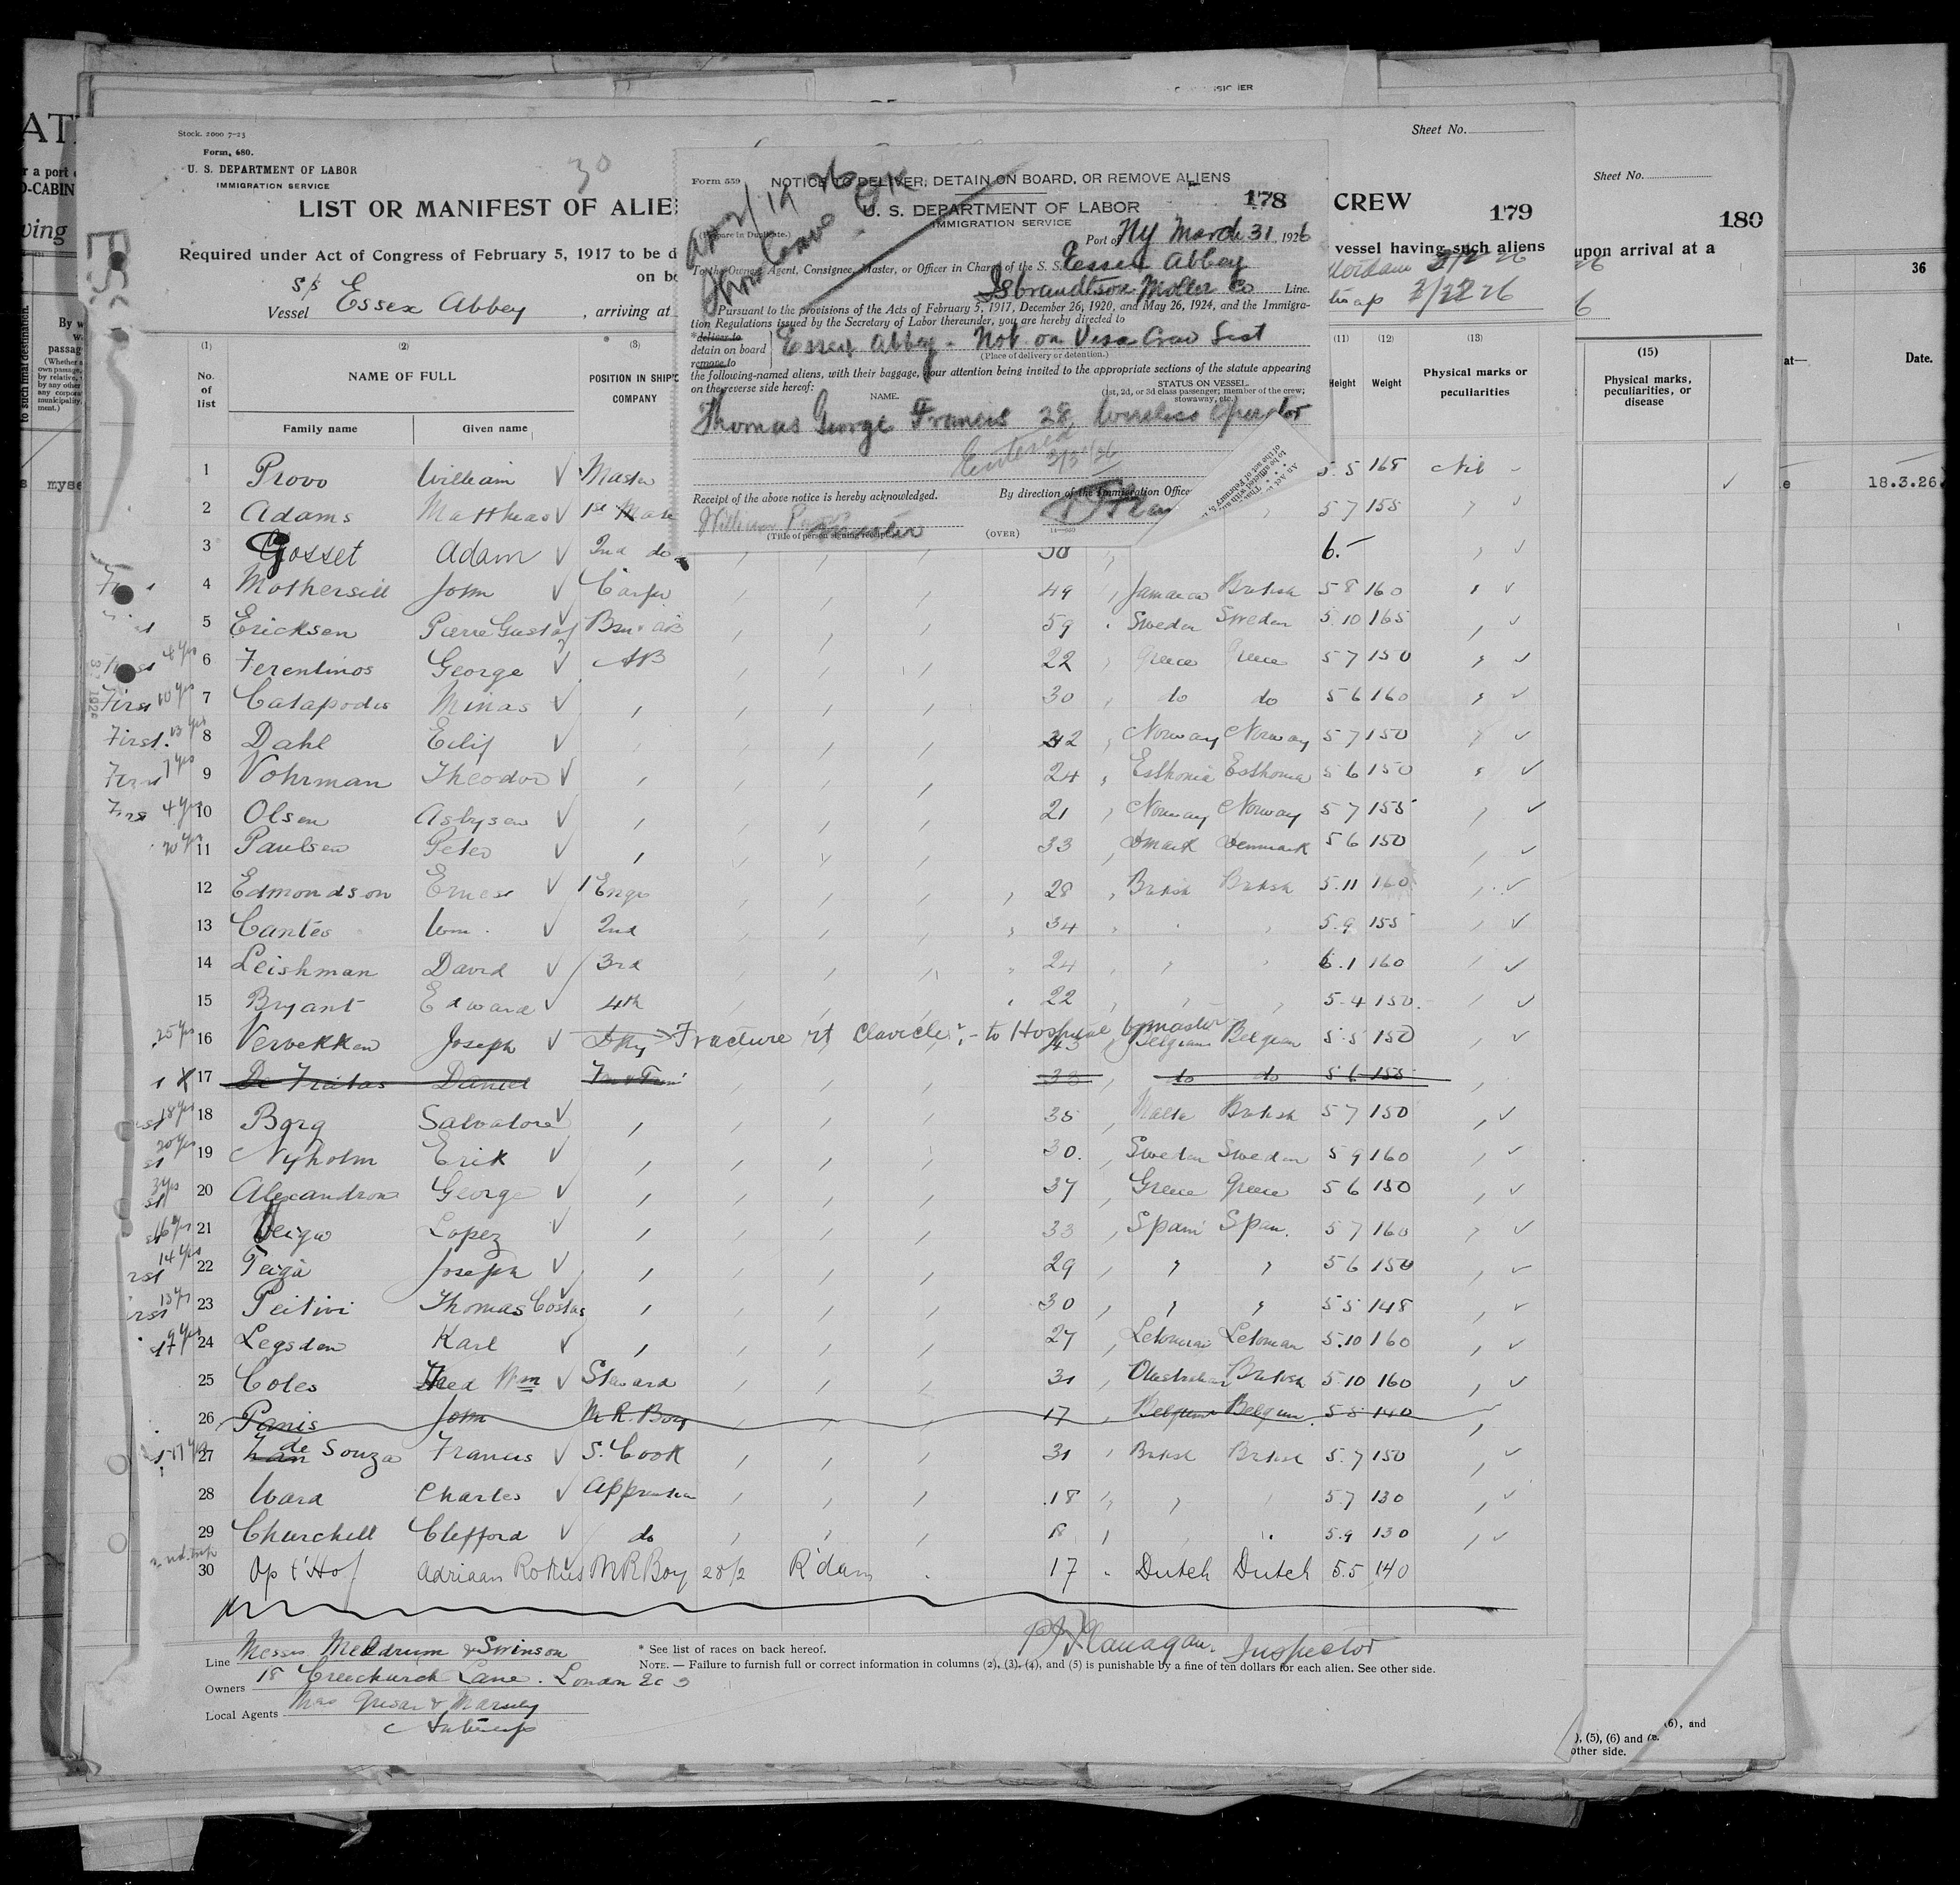 Stock. 2000 7-23
Form, 680.
U. S. DEPARTMENT OF LABOR
IMMIGRATION SERVICE
30
LIST OR MANIFEST OF ALIE
CREW
Sheet No.
179
Required under Act of Congress of February 5, 1917 to be d
vessel having such aliens
on bo
Vessel Essex Abbey , arriving at
2/22 26
(1) (2) (3) (11) (12) (13)
No. of list
NAME OF FULL
POSITION IN SHIP'S COMPANY
Height Weight Physical marks or peculiarities
Family name Given name
Form 559
NOTICE TO DELIVER, DETAIN ON BOARD, OR REMOVE ALIENS
178
U. S. DEPARTMENT OF LABOR
IMMIGRATION SERVICE
(Prepare in Duplicate.)
Port of Ny March 31, 1926
To the Owner, Agent, Consignee, Master, or Officer in Charge of the S. S. Essex Abbey
Isbrandtson Moller Co Line.
Pursuant to the provisions of the Acts of February 5, 1917, December 26, 1920, and May 26, 1924, and the Immigra-
tion Regulations issued by the Secretary of Labor thereunder, you are hereby directed to
*deliver to
detain on board
remove to
Essex Abbey - Not on Visa Crew List
(Place of delivery or detention.)
the following-named aliens, with their baggage, your attention being invited to the appropriate sections of the statute appearing
on the reverse side hereof:
NAME.
STATUS ON VESSEL.
(1st, 2d, or 3d class passenger; member of the crew;
stowaway, etc.)
Thomas George Francis 28 Wireless Operator
Entered
3/31/26
Receipt of the above notice is hereby acknowledged.
By direction of the Immigration Office
William
Master
(Title of person signing receipt.)
(OVER)
14—559
1 Provo William Master 5.5 168 Nil
2 Adams Matthias 1st Mate 5 7 155
3 Gosset Adam 2nd do 6.-
4 Mothersill John 49 Jamaica British 5 8 160
5 Ericksen Pierre Gustaf 59 Sweden Sweden 5.10 165
First 4 yrs 6 Ferentinos George AB 22 Greece Greece 5 7 150
First 10 yrs 7 Catapodis Minas 30 do do 5 6 160
First. 13 yrs 8 Dahl Eilif Norway Norway 5 7 150
First 7 yrs 9 Vohrman Theodor 24 Esthonia Esthonia 5 6 150
4 yrs 10 Olsen Asbysen 21 Norway Norway 5 7 155
20 yrs 11 Paulsen Peter 33 Dmark Denmark 5 6 150
12 Edmondson Ernest 1 Engr 28 British British 5.11 160
13 Canter Wm. 2nd 34 5.9 155
14 Leishman David 3rd 24 6.1 160
15 Bryant Edward 4th 22 5.4 150
25 yrs 16 Vervekken Joseph Dky Fracture rt Clavicle - to Hospital by master Belgian Belgian 5.5 150
17 De Frietas Daniel 38 do do 5 6 155
18 yrs 18 Borg Salvatore 35 Malta British 5 7 150
20 yrs 19 Nyholm Erik 30. Sweden Sweden 5 9 160
3 yrs 20 Alexandron George 37 Greece Greece 5 6 150
16 yrs 21 Veiga Lopez 33 Spain Spain. 5 7 160
14 yrs 22 Joseph 29 5 6 150
13 yrs 23 Peitivi Thomas Costas 30 5 5 148
24 Legsden Karl 27 5.10 160
25 Coles Fred Wm Steward 31 Australian British 5.10 160
26 Panis John M. R. Boy 17 Belgium Belgian 5 5 140
27 de Souza Francis S. Cook 31 British British 5.7 150
28 Ward Charles Apprentice 18 5.7 130
29 Churchill Clifford do 18 5.9 130
30 Op t'Hof Adriaan Rokus M R Boy 28/2 R'dam 17 Dutch Dutch 5.5 140
Line Messrs Meldrum & Swinson
Owners 18 Creechurch Lane. London Ec 3
Local Agents
Antwerp
* See list of races on back hereof.
P J Flanagan. Inspector
NOTE. — Failure to furnish full or correct information in columns (2), (3), (4), and (5) is punishable by a fine of ten dollars for each alien. See other side.
Sheet No.
180
upon arrival at a
(15)
Physical marks, peculiarities, or disease
(6), and
), (5), (6) and
other side.
36
at—
Date.
18.3.26